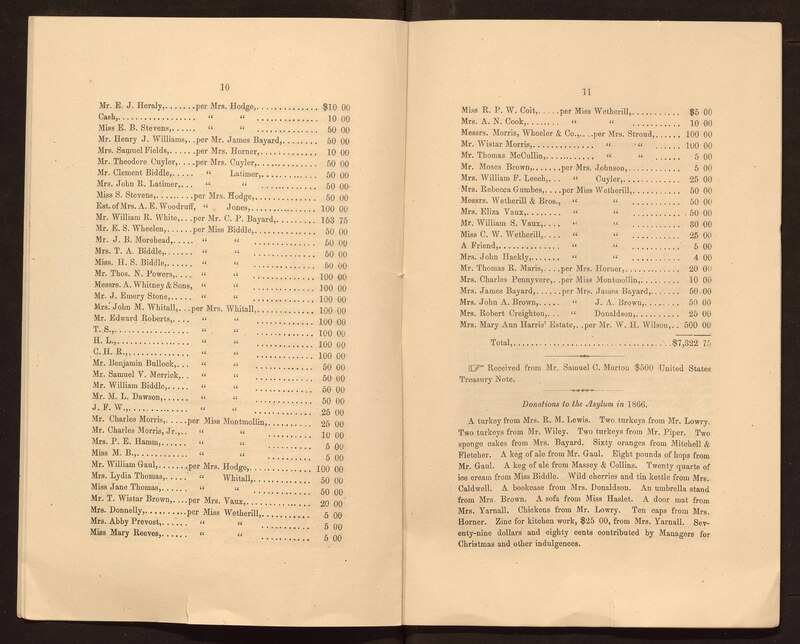 10
Mr. E. J. Heraly,.......per Mrs. Hodge,............... $10 00
Cash,.................... “ “ ............... 10 00
Miss E. B. Stevens,...... “ “ ............... 50 00
Mr. Henry J. Williams,..per Mr. James Bayard,......... 50 00
Mrs. Samuel Fields,.....per Mrs. Horner,.............. 10 00
Mr. Theodore Cuyler,...per Mrs. Cuyler,............... 50 00
Mr. Clement Biddle,..... “ Latimer,............... 50 00
Mrs. John R. Latimer,... “ “ ............... 50 00
Miss S. Stevens,........per Mrs. Hodge,............... 50 00
Est. of Mrs. A. E. Woodruff, “ Jones,............... 100 00
Mr. William R. White,...per Mr. C. P. Bayard,......... 153 75
Mr. E. S. Wheelen,.....per Miss Biddle,............... 50 00
Mr. J. B. Morehead,..... “ “ ............... 50 00
Mrs. T. A. Biddle,...... “ “ ............... 50 00
Miss. H. S. Biddle,..... “ “ ............... 50 00
Mr. Thos. N. Powers,.... “ “ ............... 100 00
Messrs. A. Whitney & Sons, “ “ ............... 100 00
Mr. J. Emery Stone,..... “ “ ............... 100 00
Mrs. John M. Whitall,...per Mrs. Whitall,............. 100 00
Mr. Edward Roberts,..... “ “ ............... 100 00
T. S.,.................. “ “ ............... 100 00
H. L.,.................. “ “ ............... 100 00
C. H. R.,............... “ “ ............... 100 00
Mr. Benjamin Bullock,... “ “ ............... 50 00
Mr. Samuel V. Merrick,.. “ “ ............... 50 00
Mr. William Biddle,..... “ “ ............... 50 00
Mr. M. L. Dawson,....... “ “ ............... 50 00
J. F. W.,............... “ “ ............... 25 00
Mr. Charles Morris,.....per Miss Montmollin,.......... 25 00
Mr. Charles Morris, Jr.,.. “ “ ............... 10 00
Mrs. P. E. Hamm,........ “ “ ............... 5 00
Miss M. B.,............. “ “ ............... 5 00
Mr. William Gaul,.......per Mrs. Hodge,............... 100 00
Mrs. Lydia Thomas,...... “ Whitall,............... 50 00
Miss Jane Thomas,....... “ “ ............... 50 00
Mr. T. Wistar Brown,....per Mrs. Vaux,................ 20 00
Mrs. Donnelly,..........per Miss Wetherill,........... 5 00
Mrs. Abby Prevost,...... “ “ ............... 5 00
Miss Mary Reeves,....... “ “ ............... 5 00
11
Miss R. P. W. Coit,.....per Miss Wetherill,........... $5 00
Mrs. A. N. Cook,........ “ “ ............... 10 00
Messrs. Morris, Wheeler & Co.,...per Mrs. Stroud,..... 100 00
Mr. Wistar Morris,...... “ “ ............... 100 00
Mr. Thomas McCullin,.... “ “ ............... 5 00
Mr. Moses Brown,........per Mrs. Johnson,............. 5 00
Mrs. William F. Leech,.. “ Cuyler,............... 25 00
Mrs. Rebecca Gumbes,....per Miss Wetherill,........... 50 00
Messrs. Wetherill & Bros., “ “ ............... 50 00
Mrs. Eliza Vaux,........ “ “ ............... 50 00
Mr. William S. Vaux,.... “ “ ............... 30 00
Miss C. W. Wetherill,... “ “ ............... 25 00
A Friend,............... “ “ ............... 5 00
Mrs. John Hackly,....... “ “ ............... 4 00
Mr. Thomas R. Maris,....per Mrs. Horner,.............. 20 00
Mrs. Charles Pennyvere,..per Miss Montmollin,......... 10 00
Mrs. James Bayard,......per Mrs. James Bayard,........ 50 00
Mrs. John A. Brown,..... “ J. A. Brown,............... 50 00
Mrs. Robert Creighton,... “ Donaldson,............... 25 00
Mrs. Mary Ann Harris' Estate,..per Mr. W. H. Wilson,... 500 00
Total,........................................ $7,322 75
☞ Received from Mr. Samuel C. Morton $500 United States
Treasury Note.
Donations to the Asylum in 1866.
A turkey from Mrs. R. M. Lewis. Two turkeys from Mr. Lowry.
Two turkeys from Mr. Wiley. Two turkeys from Mr. Piper. Two
sponge cakes from Mrs. Bayard. Sixty oranges from Mitchell &
Fletcher. A keg of ale from Mr. Gaul. Eight pounds of hops from
Mr. Gaul. A keg of ale from Massey & Collins. Twenty quarts of
ice cream from Miss Biddle. Wild cherries and tin kettle from Mrs.
Caldwell. A bookcase from Mrs. Donaldson. An umbrella stand
from Mrs. Brown. A sofa from Miss Haslet. A door mat from
Mrs. Yarnall. Chickens from Mr. Lowry. Ten caps from Mrs.
Horner. Zinc for kitchen work, $25 00, from Mrs. Yarnall. Sev-
enty-nine dollars and eighty cents contributed by Managers for
Christmas and other indulgences.